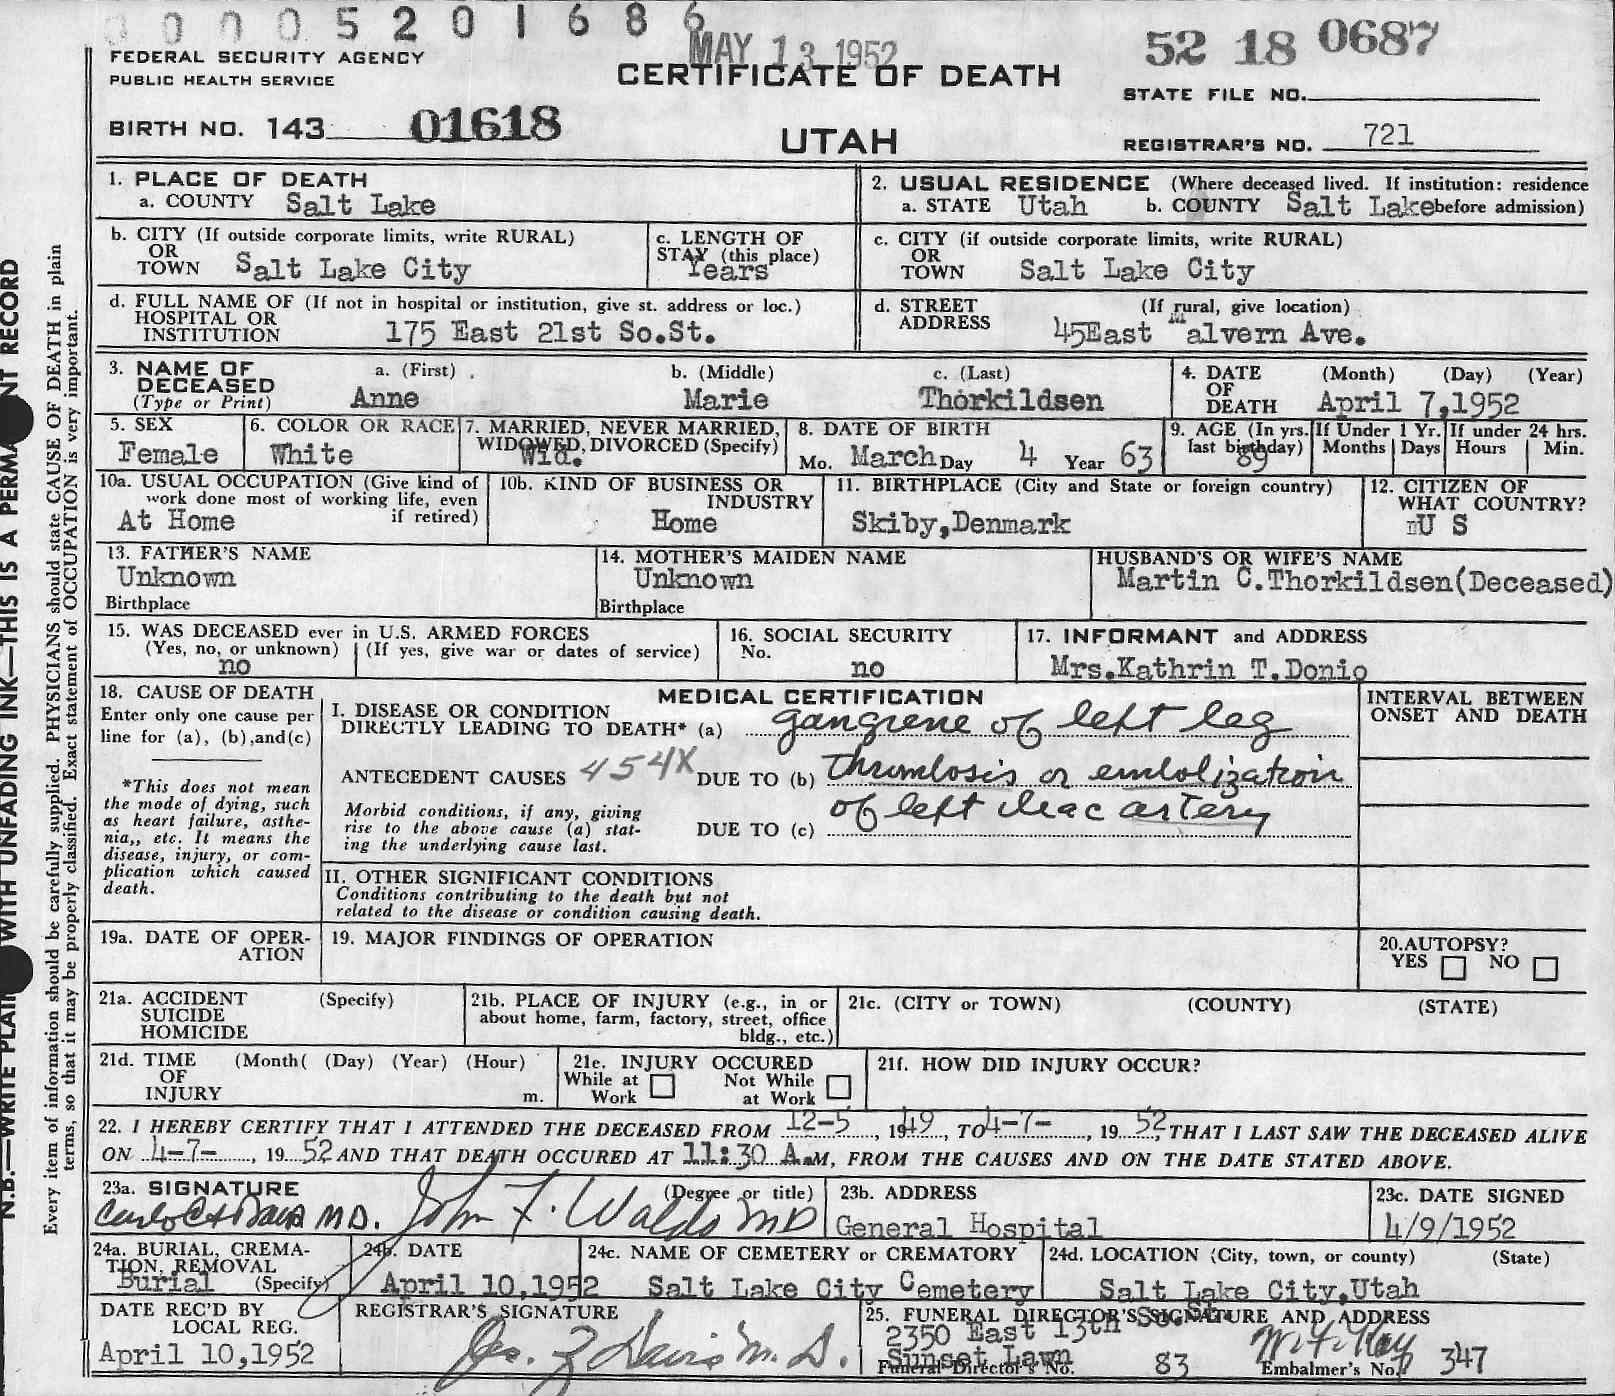 0000520 1686
MAY 13 1952
52 18 0687
FEDERAL SECURITY AGENCY
PUBLIC HEALTH SERVICE
CERTIFICATE OF DEATH
STATE FILE NO.
BIRTH NO. 143 01618
UTAH
REGISTRAR'S NO. 721
N.B.—WRITE PLAIN WITH UNFADING INK—THIS IS A PERMA NT RECORD
Every item of information should be carefully supplied. PHYSICIANS should state CAUSE OF DEATH in plain
terms, so that it may be properly classified. Exact statement of OCCUPATION is very important.
1. PLACE OF DEATH
a. COUNTY Salt Lake
2. USUAL RESIDENCE (Where deceased lived. If institution: residence
a. STATE Utah b. COUNTY Salt Lake before admission)
b. CITY (If outside corporate limits, write RURAL)
OR
TOWN Salt Lake City
c. LENGTH OF
STAY (this place)
Years
c. CITY (if outside corporate limits, write RURAL)
OR
TOWN Salt Lake City
d. FULL NAME OF (If not in hospital or institution, give st. address or loc.)
HOSPITAL OR
INSTITUTION 175 East 21st So.St.
d. STREET (If rural, give location)
ADDRESS 45East Malvern Ave.
3. NAME OF
DECEASED
(Type or Print)
a. (First) b. (Middle) c. (Last)
Anne Marie Thorkildsen
4. DATE (Month) (Day) (Year)
OF
DEATH April 7,1952
5. SEX
Female
6. COLOR OR RACE
White
7. MARRIED, NEVER MARRIED,
WIDOWED, DIVORCED (Specify)
Wid.
8. DATE OF BIRTH
Mo. March Day 4 Year 63
9. AGE (In yrs.
last birthday)
89
If Under 1 Yr.
Months Days
If under 24 hrs.
Hours Min.
10a. USUAL OCCUPATION (Give kind of
work done most of working life, even
if retired)
At Home
10b. KIND OF BUSINESS OR
INDUSTRY
Home
11. BIRTHPLACE (City and State or foreign country)
Skiby,Denmark
12. CITIZEN OF
WHAT COUNTRY?
U S
13. FATHER'S NAME
Unknown
Birthplace
14. MOTHER'S MAIDEN NAME
Unknown
Birthplace
HUSBAND'S OR WIFE'S NAME
Martin C.Thorkildsen(Deceased)
15. WAS DECEASED ever in U.S. ARMED FORCES
(Yes, no, or unknown) (If yes, give war or dates of service)
no
16. SOCIAL SECURITY
No.
no
17. INFORMANT and ADDRESS
Mrs.Kathrin T.Donio
18. CAUSE OF DEATH
Enter only one cause per
line for (a), (b),and(c)
*This does not mean
the mode of dying, such
as heart failure, asthe-
nia,, etc. It means the
disease, injury, or com-
plication which caused
death.
MEDICAL CERTIFICATION
I. DISEASE OR CONDITION
DIRECTLY LEADING TO DEATH* (a) gangrene of left leg
ANTECEDENT CAUSES 454X DUE TO (b) thrombosis or embolization
of left iliac artery
Morbid conditions, if any, giving
rise to the above cause (a) stat-
ing the underlying cause last.
DUE TO (c)
INTERVAL BETWEEN
ONSET AND DEATH
II. OTHER SIGNIFICANT CONDITIONS
Conditions contributing to the death but not
related to the disease or condition causing death.
19a. DATE OF OPER-
ATION
19. MAJOR FINDINGS OF OPERATION
20.AUTOPSY?
YES NO
21a. ACCIDENT (Specify)
SUICIDE
HOMICIDE
21b. PLACE OF INJURY (e.g., in or
about home, farm, factory, street, office
bldg., etc.)
21c. (CITY or TOWN) (COUNTY) (STATE)
21d. TIME (Month( (Day) (Year) (Hour)
OF
INJURY m.
21e. INJURY OCCURED
While at Work Not While at Work
21f. HOW DID INJURY OCCUR?
22. I HEREBY CERTIFY THAT I ATTENDED THE DECEASED FROM 12-5, 1949, TO 4-7-, 19 52, THAT I LAST SAW THE DECEASED ALIVE
ON 4-7-, 19 52 AND THAT DEATH OCCURED AT 11:30 A.M, FROM THE CAUSES AND ON THE DATE STATED ABOVE.
23a. SIGNATURE (Degree or title)
MD. John F. Waldo MD
23b. ADDRESS
General Hospital
23c. DATE SIGNED
4/9/1952
24a. BURIAL, CREMA-
TION, REMOVAL
Burial (Specify)
24b. DATE
April 10,1952
24c. NAME OF CEMETERY or CREMATORY
Salt Lake City Cemetery
24d. LOCATION (City, town, or county) (State)
Salt Lake City,Utah
DATE REC'D BY
LOCAL REG.
April 10,1952
REGISTRAR'S SIGNATURE
Davis M.D.
25. FUNERAL DIRECTOR'S SIGNATURE AND ADDRESS
2350 East 13th So. St.
Sunset Lawn
Funeral Director's No. 83 Embalmer's No. 347